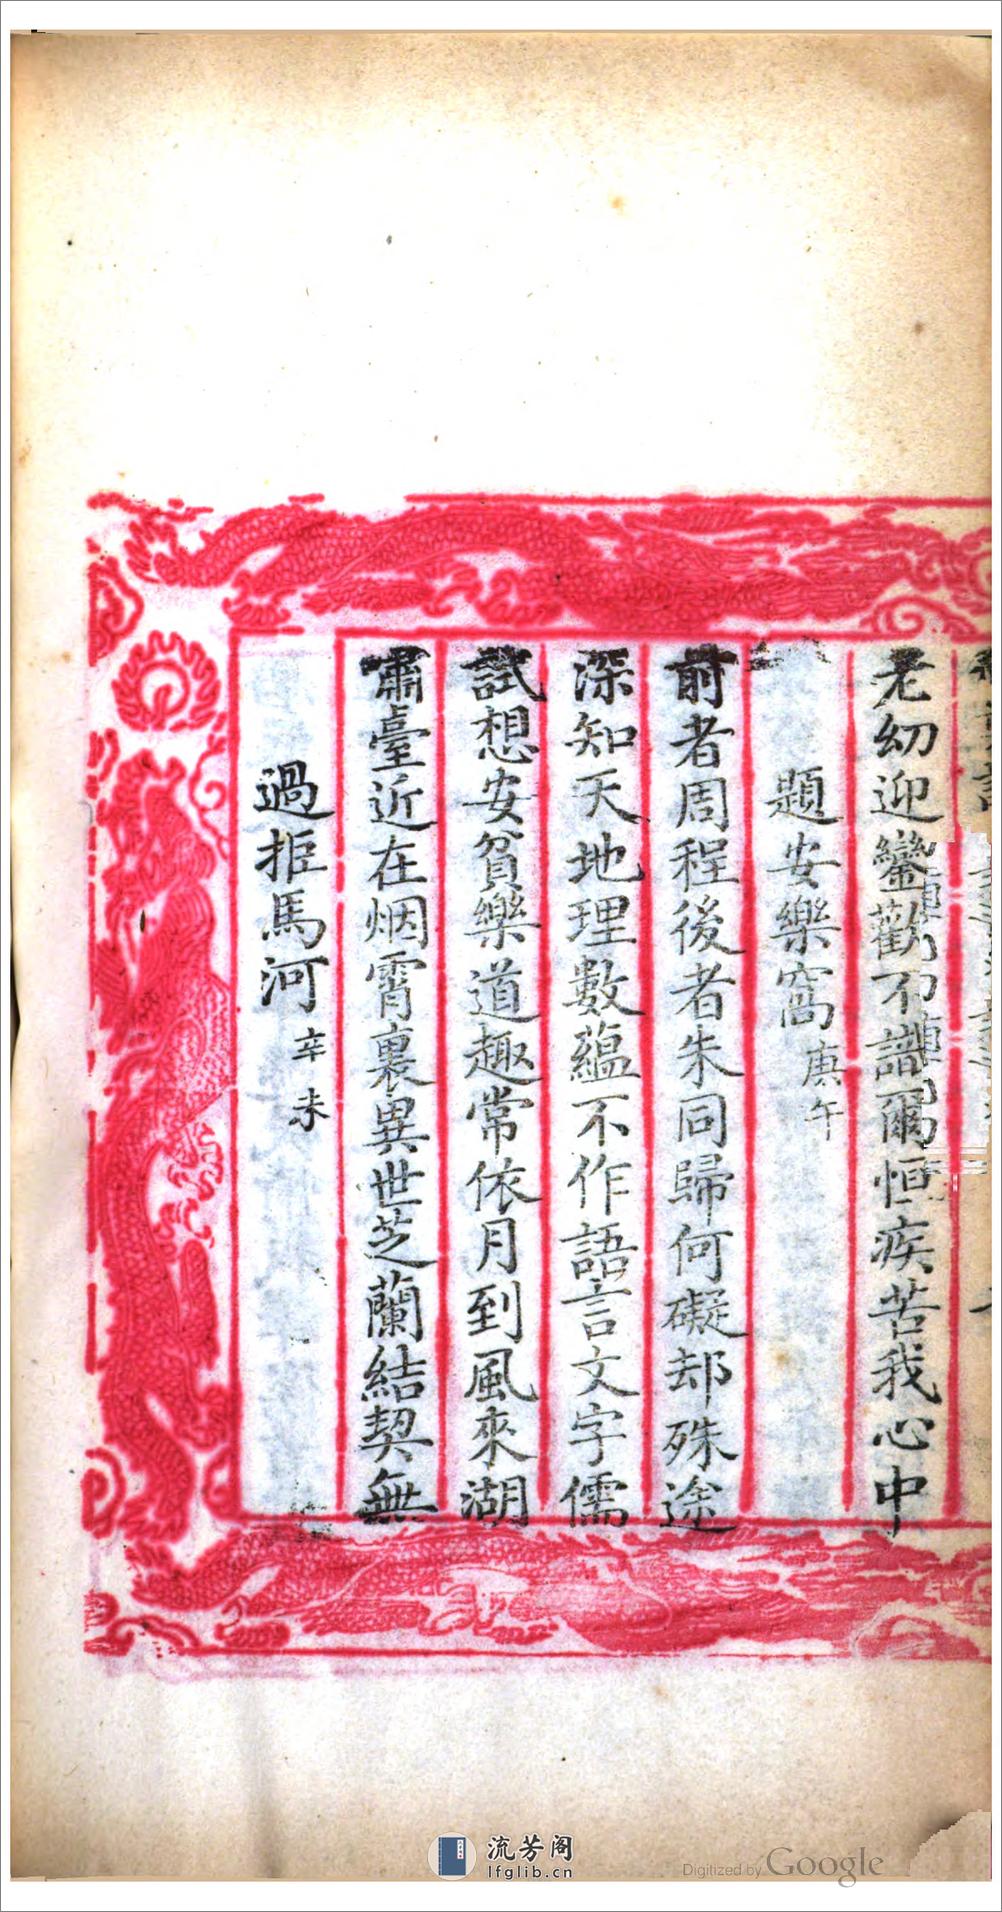 老幼迎鑾歡不譜爾恒疾苦我心中
題安樂窩庚午
前者周程後者朱同歸何礙却殊途
深知天地理數蘊不作語言文字儒
試想安貧樂道趣常依月到風來湖
肅臺近在烟霄裏異世芝蘭結契無
過拒馬河辛未
流芳阁
lfglib.cn
Digitized by Google